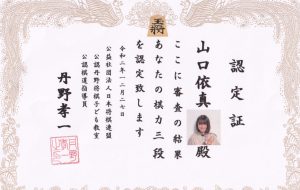 認定証
山口依真殿
ここに審査の結果
あなたの棋力三段
を認定致します
令和二年一二月二七日
公益社団法人日本将棋連盟
公認丹野将棋子ども教室
公認棋道指導員
丹野孝一